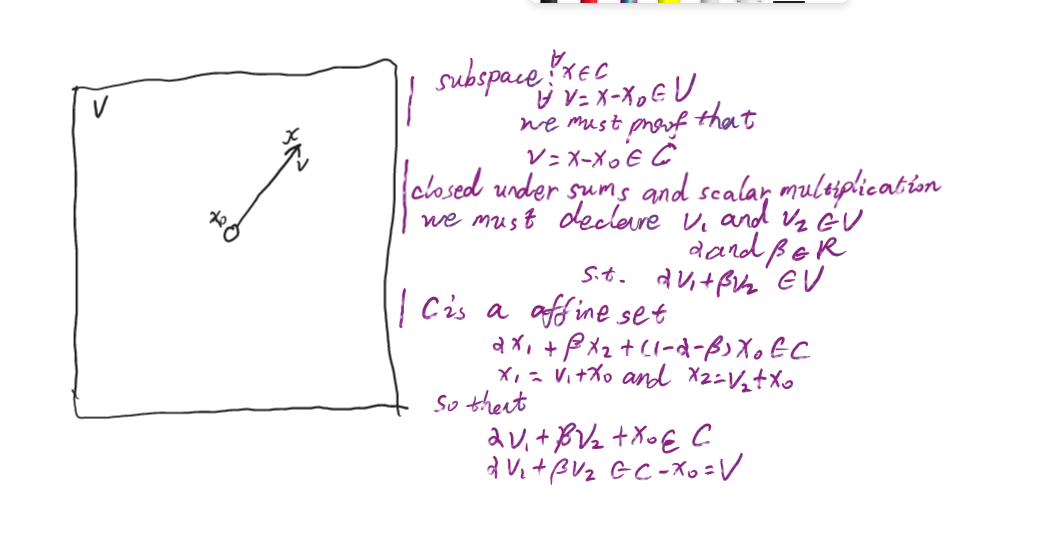 V
x
v
x₀
∀ x ∈ C
subspace:
∀ v = x-x₀ ∈ V
we must proof that
v = x-x₀ ∈ C
closed under sums and scalar multiplication
we must declare v₁ and v₂ ∈ V
α and β ∈ R
s.t. αv₁+βv₂ ∈ V
C is a affine set
αx₁ + βx₂ + (1-α-β)x₀ ∈ C
x₁ = v₁+x₀ and x₂=v₂+x₀
so that
αv₁ + βv₂ + x₀ ∈ C
αv₁ + βv₂ ∈ C-x₀ = V